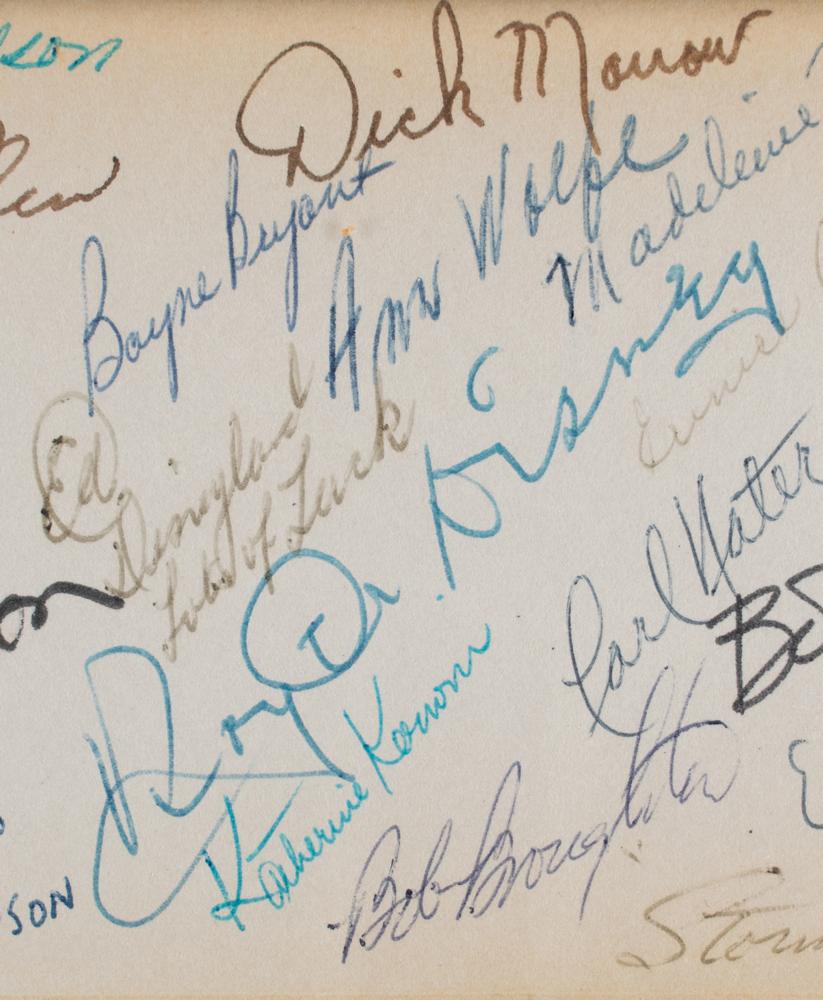 Dick Morrow
Bayne Bryant
Ann Wolfe
Madeleine
Ed.
Disneyland
Lots of Luck
Roy O. Disney
Eunice
Carl Nater
Katherine
Bob Broughton
SON